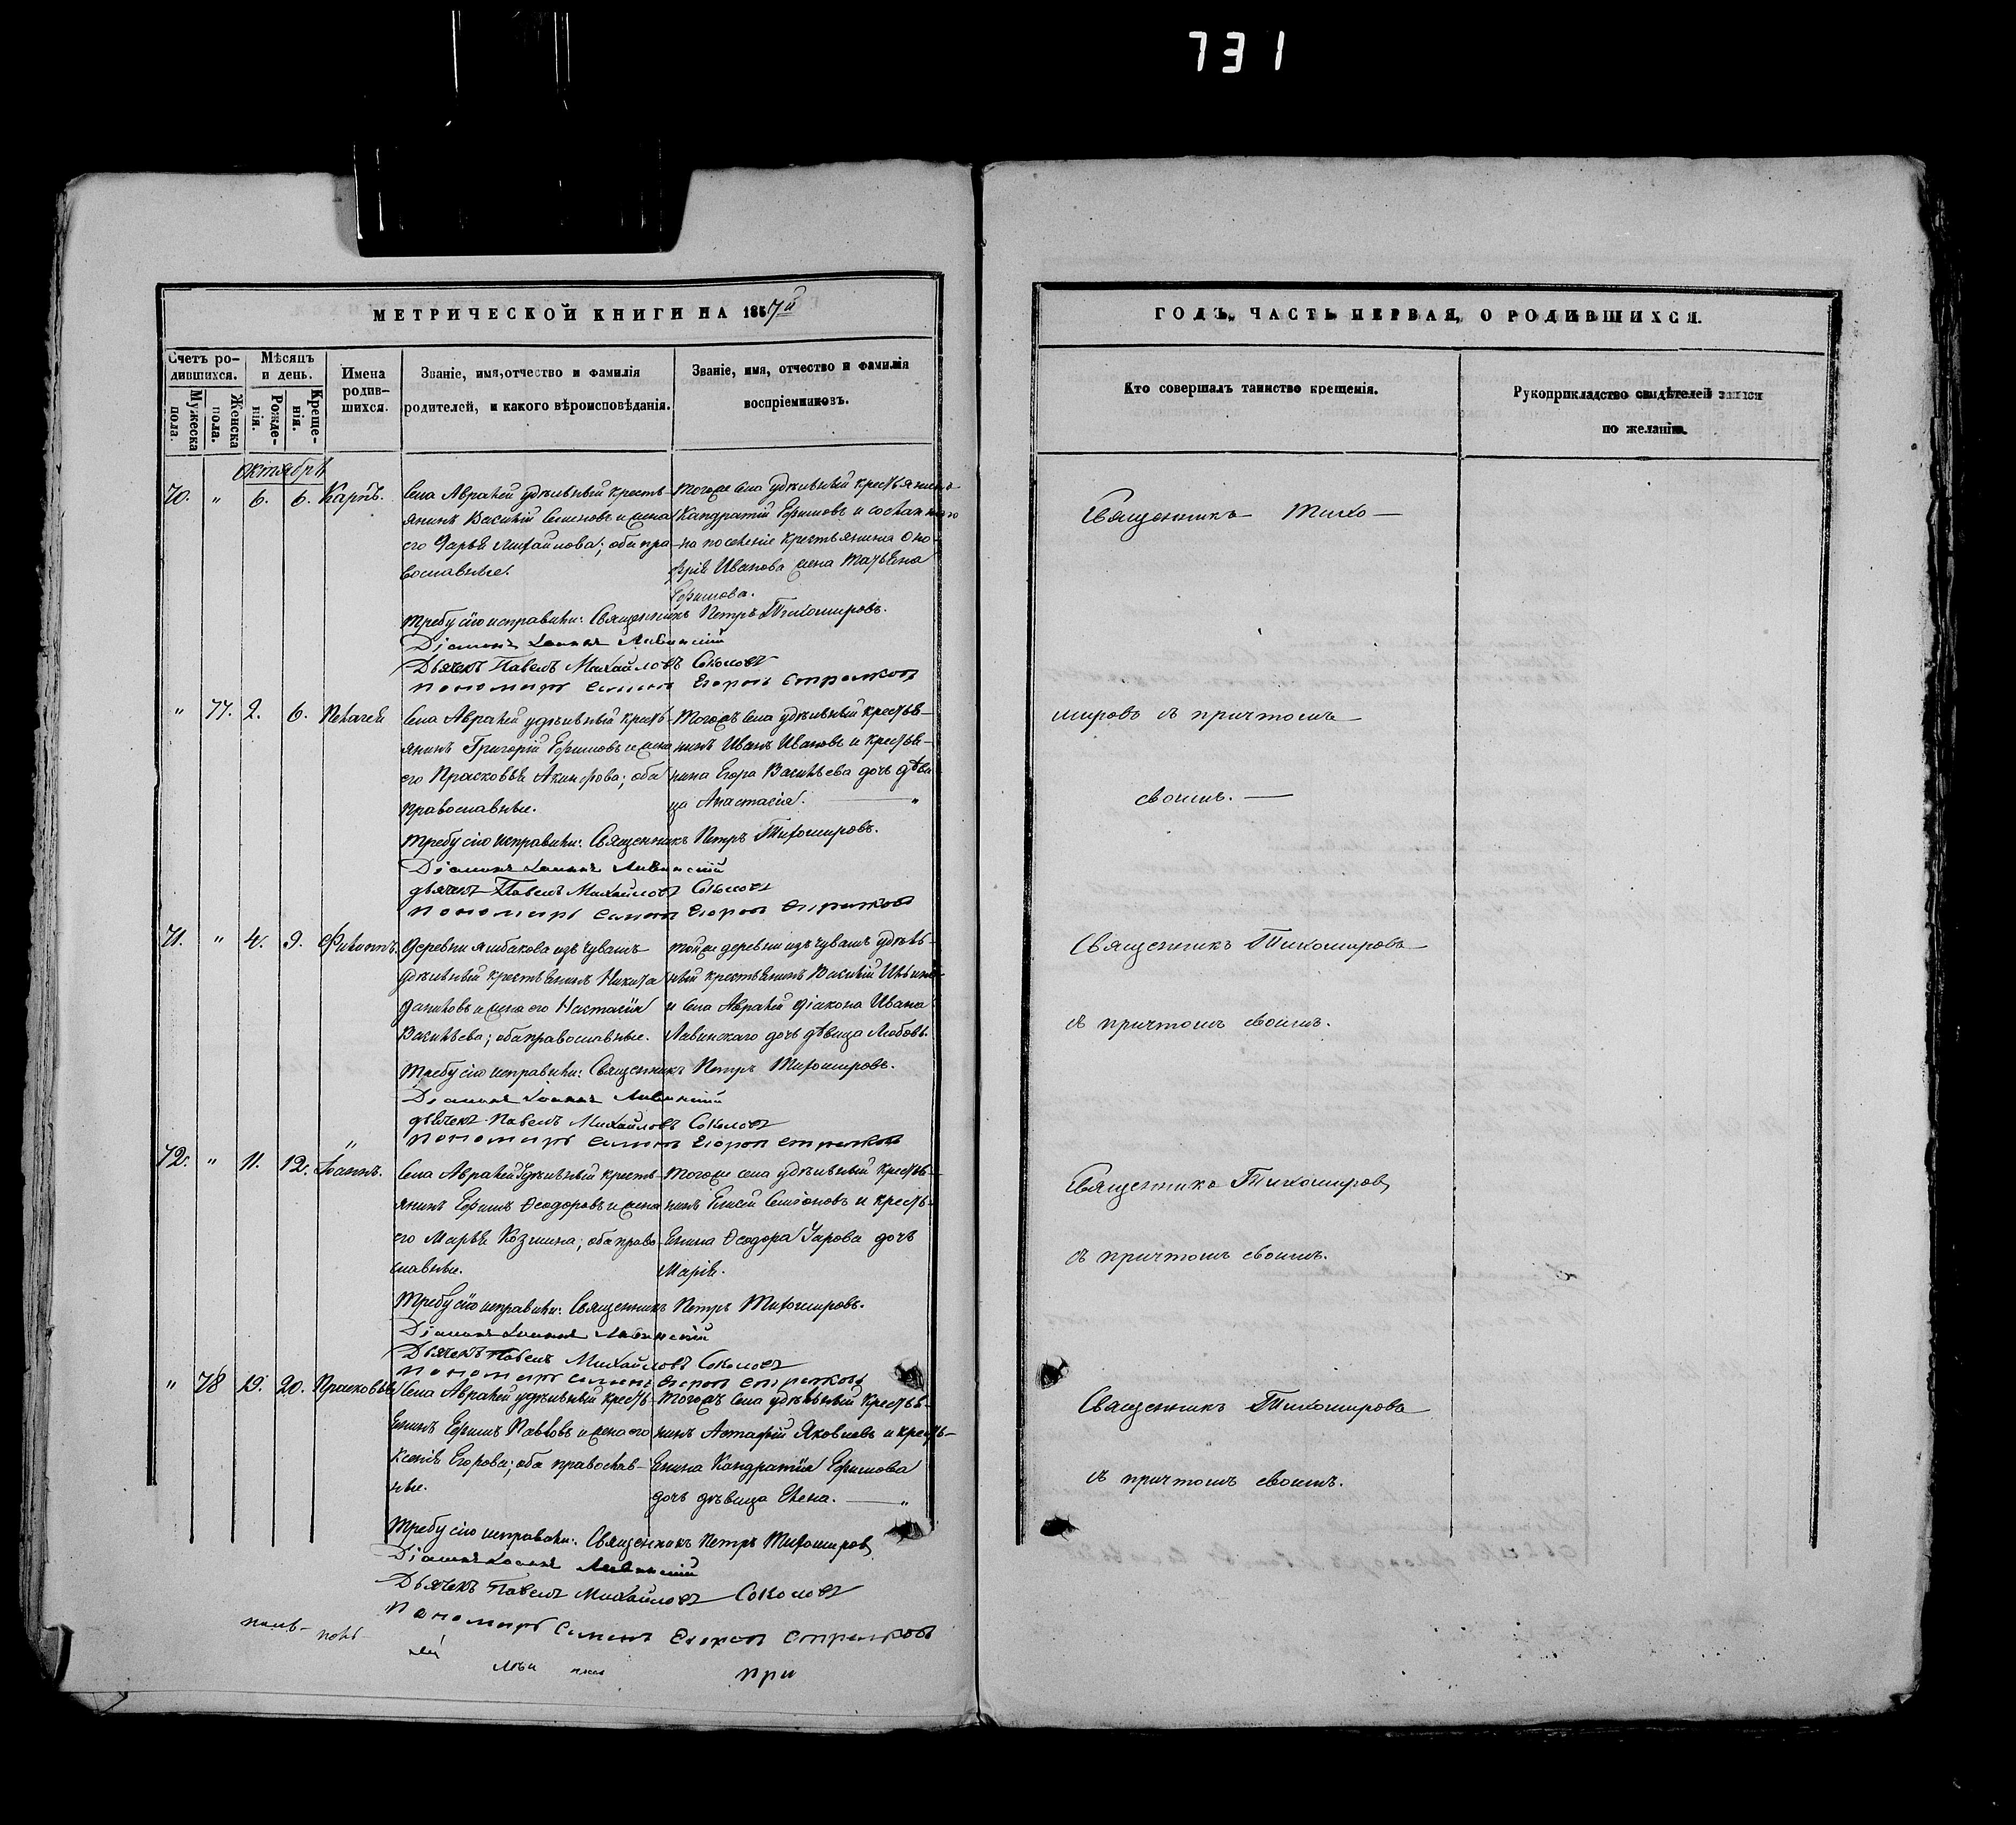 731
МЕТРИЧЕСКОЙ КНИГИ НА 1857й
ГОДЪ, ЧАСТЬ ПЕРВАЯ, О РОДИВШИХСЯ.
Счетъ родившихся.
Мужеска пола.
Женска пола.
Мѣсяцъ и день.
Рожденія.
Крещенія.
Имена родившихся.
Званіе, имя, отчество и фамилія
родителей, и какого вѣроисповѣданія.
Званіе, имя, отчество и фамилія
воспріемниковъ.
Кто совершалъ таинство крещенія.
Рукоприкладство свидѣтелей записи
по желанію.
Октябрь
70. " 6. 6. Карпъ.
Села Авралей удѣльный кресть-
янинъ Василій Семеновъ и жена
его Дарья Михайлова; оба пра-
вославные.
Тогоже села удѣльный крестьянинъ
Кандратій Ефимовъ и сосланнаго
на поселеніе крестьянина Оно-
фрія Иванова жена Матвена
Ефимова.
Требу сію исправили: Священникъ Петръ Тихомировъ.
Діаконъ Іоаннъ Лавинскій
Дьячекъ Павелъ Михайловъ Соколовъ
Пономарь Семенъ Егоровъ Стрелковъ
Священникъ Тихо-
" 77. 2. 6. Пелагея
Села Авралей удѣльный кресть-
янинъ Григорій Ефимовъ и жена
его Прасковья Акинфова; оба
православные.
Тогожъ села удѣльный крестья-
нинъ Иванъ Ивановъ и крестья-
нина Егора Васильева дочь дѣви-
ца Анастасія. "
Требу сію исправили: Священникъ Петръ Тихомировъ.
Діаконъ Іоаннъ Лавинскій
дьячекъ Павелъ Михайловъ Соколовъ
Пономарь Семенъ Егоровъ Стрелковъ
мировъ съ причтомъ
своимъ.
71. " 4. 9. Филиппъ.
Деревни Яшбакова изъ чувашъ
удѣльный крестьянинъ Никита
Даниловъ и жена его Настасія
Васильева; оба православные.
Тойже деревни изъ чувашъ удѣль-
ный крестьянинъ Василій Ильинъ
и села Авралей діакона Ивана
Лавинскаго дочь дѣвица Любовь.
Требу сію исправили: Священникъ Петръ Тихомировъ.
Діаконъ Іоаннъ Лавинскій
дьячекъ Павелъ Михайловъ Соколовъ
Пономарь Семенъ Егоровъ Стрелковъ
Священникъ Тихомировъ
съ причтомъ своимъ.
72. " 11. 12. Іоаннъ.
Села Авралей удѣльный кресть-
янинъ Ефимъ Ѳеодоровъ и жена
его Марья Козмина; оба право-
славные.
Тогоже села удѣльный крестья-
нинъ Елисей Семіоновъ и кресть-
янина Ѳеодора Уарова дочь
Марія.
Требу сію исправили: Священникъ Петръ Тихомировъ.
Діаконъ Іоаннъ Лавинскій
Дьячекъ Павелъ Михайловъ Соколовъ
Пономарь Семенъ Егоровъ Стрелковъ
Священникъ Тихомировъ
съ причтомъ своимъ.
" 78 19. 20. Прасковья
Села Авралей удѣльный кресть-
янинъ Ефимъ Павловъ и жена его
Ксенія Егорова; оба православ-
ные.
Тогожъ села удѣльный крестья-
нинъ Астафій Яковлевъ и кресть-
янина Кандратія Ефимова
дочь дѣвица Елена. "
Требу сію исправили: Священникъ Петръ Тихомировъ
Діаконъ Іоаннъ Лавинскій
Дьячекъ Павелъ Михайловъ Соколовъ
Пономарь Семенъ Егоровъ Стрелковъ
Священникъ Тихомировъ
съ причтомъ своимъ.
при